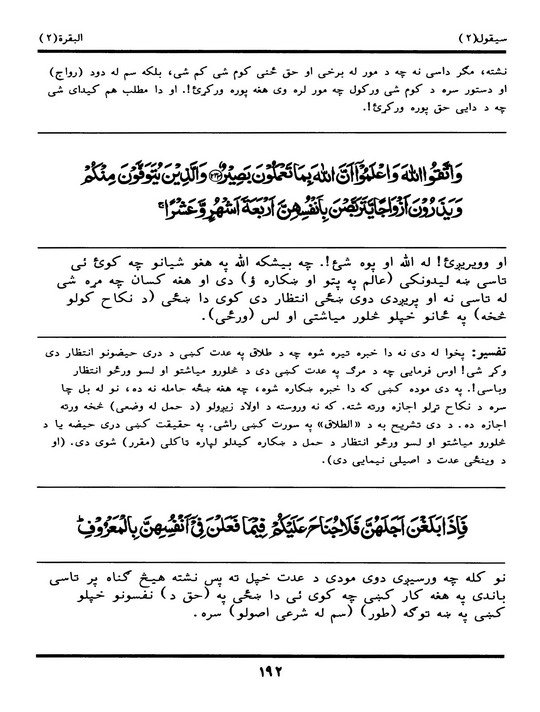 سيقول(٢) البقرة(٢)
نشته، مګر داسى نه چه د مور له برخى او حق څنى کوم شى کم شى، بلکه سم له دود (رواج)
او دستور سره د کوم شى ورکول چه مور لره وى هغه پوره ورکړئ!. او دا مطلب هم کيداى شى
چه د دايى حق پوره ورکړئ!.
وَاتَّقُوا اللهَ وَاعْلَمُوْٓا اَنَّ اللهَ بِمَا تَعْمَلُوْنَ بَصِيْرٌ ﴿٢٣٣﴾ وَالَّذِيْنَ يُتَوَفَّوْنَ مِنْكُمْ
وَيَذَرُوْنَ اَزْوَاجًا يَّتَرَبَّصْنَ بِاَنْفُسِهِنَّ اَرْبَعَةَ اَشْهُرٍ وَّعَشْرًا ۚ
او وويريږئ! له الله او پوه شئ!. چه بيشکه الله په هغو شيانو چه کوئ ئى
تاسى ښه ليدونکى (عالم په پتو او ښکاره ؤ) دى او هغه کسان چه مړه شى
له تاسى نه او پريږدى دوى ښځى انتظار دى کوى دا ښځى (د نکاح کولو
څخه) په ځانو خپلو څلور مياشتى او لس (ورځى).
تفسير: پخوا له دى نه دا خبره تيره شوه چه د طلاق په عدت کښى د درى حيضونو انتظار دى
وکړ شى! اوس فرمايى چه د مرګ په عدت کښى دى د څلورو مياشتو او لسو ورځو انتظار
وباسى!. په دى موده کښى که دا خبره ښکاره شوه، چه هغه ښځه حامله نه ده، نو له بل چا
سره د نکاح تړلو اجازه ورته شته. که نه وروسته د اولاد زيږولو (د حمل له وضعى) څخه ورته
اجازه ده. د دى تشريح به د «الطلاق» په سورت کښى راشى. په حقيقت کښى درى حيضه يا د
څلورو مياشتو او لسو ورځو انتظار د حمل د ښکاره کيدلو لپاره ټاکلى (مقرر) شوى دى. (او
د وينځى عدت د اصيلى نيمايى دى).
فَاِذَا بَلَغْنَ اَجَلَهُنَّ فَلَا جُنَاحَ عَلَيْكُمْ فِيْمَا فَعَلْنَ فِيْٓ اَنْفُسِهِنَّ بِالْمَعْرُوْفِ ؕ
نو کله چه ورسيږى دوى مودى د عدت خپل ته پس نشته هيڅ ګناه پر تاسى
باندى په هغه کار کښى چه کوى ئى دا ښځى په (حق د) نفسونو خپلو
کښى په ښه توګه (طور) (سم له شرعى اصولو) سره.
١٩٢